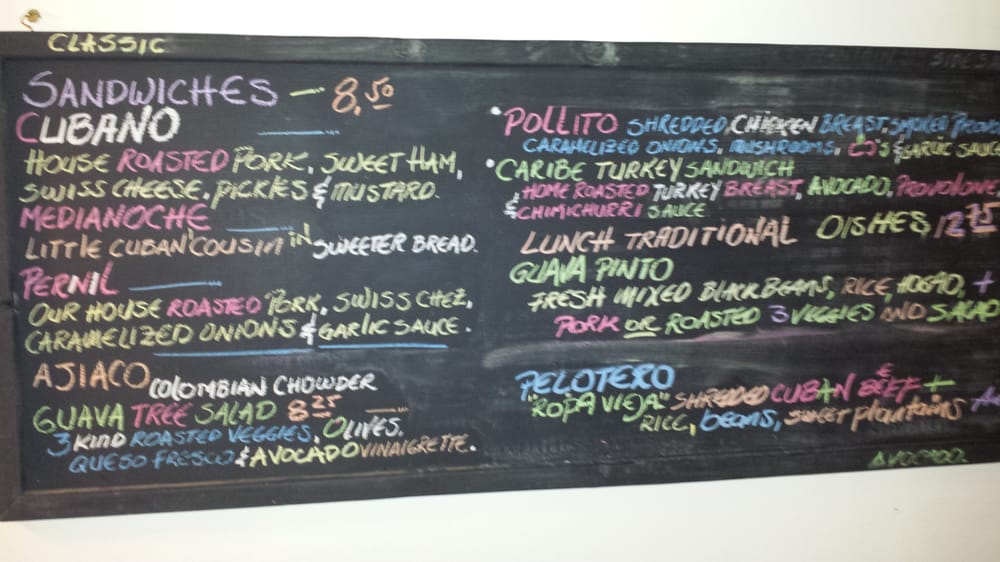 CLASSIC
SANDWICHES - 8.50
CUBANO
HOUSE ROASTED PORK, SWEET HAM,
SWISS CHEESE, PICKLES & MUSTARD.
MEDIANOCHE
LITTLE CUBAN COUSIN IN SWEETER BREAD.
PERNIL
OUR HOUSE ROASTED PORK, SWISS CHEZ,
CARAMELIZED ONIONS & GARLIC SAUCE.
AJIACO COLOMBIAN CHOWDER
GUAVA TREE SALAD 8.25
3 KIND ROASTED VEGGIES, OLIVES,
QUESO FRESCO & AVOCADO VINAIGRETTE.
POLLITO SHREDDED, CHICKEN BREAST, SMOKED
CARAMELIZED ONIONS, MUSHROOMS, & GARLIC SAUCE
CARIBE TURKEY SANDWICH
HOME ROASTED TURKEY BREAST, AVOCADO, PROVOLONE
& CHIMICHURRI SAUCE
LUNCH TRADITIONAL DISHES 12.75
GUAVA PINTO
FRESH MIXED BLACK BEANS, RICE, HOGAO, +
PORK OR ROASTED 3 VEGGIES AND SALAD
PELOTERO
"ROPA VIEJA" SHREDDED CUBAN BEEF +
RICE, beans, sweet plantains
AVOCADO.